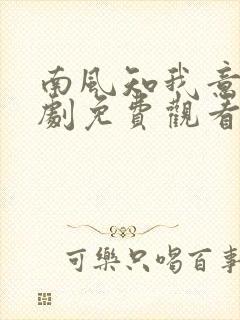 南風知我意
劇免費觀看
可樂只喝百事